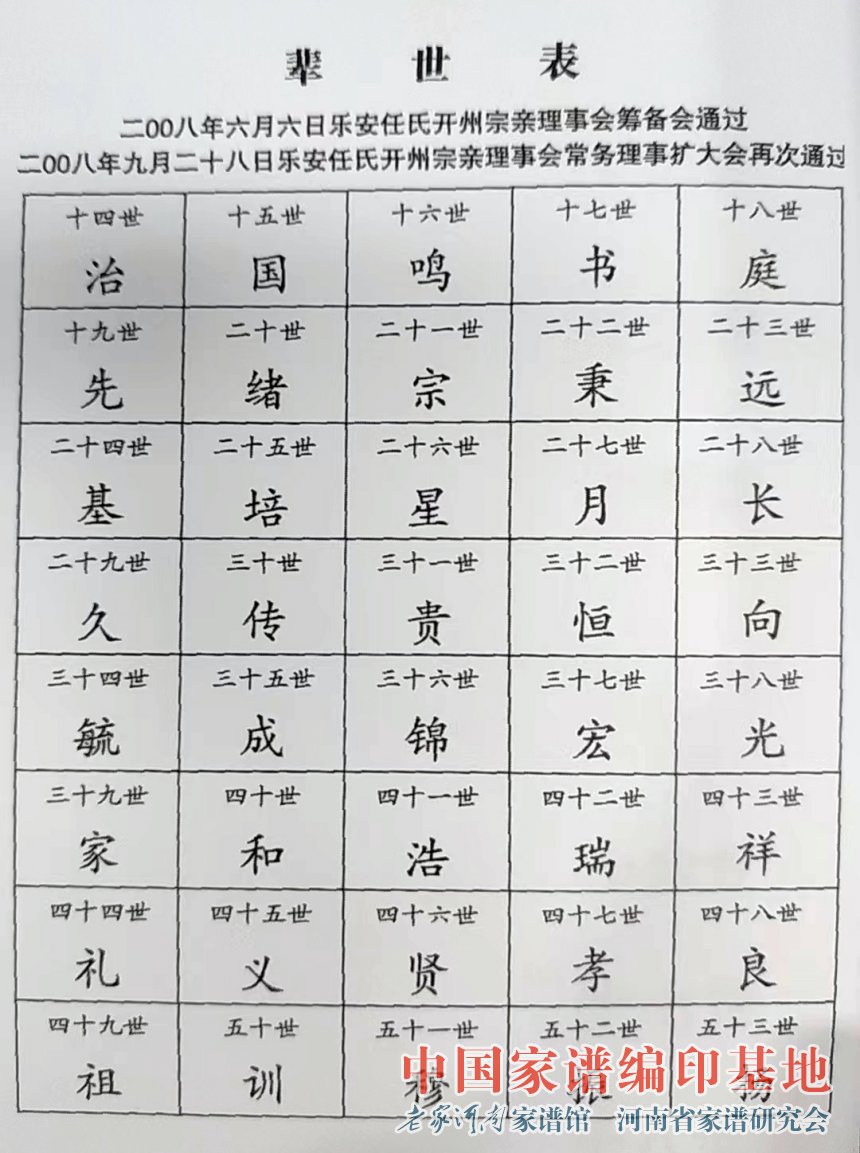 辈 世 表
二00八年六月六日乐安任氏开州宗亲理事会筹备会通过
二00八年九月二十八日乐安任氏开州宗亲理事会常务理事扩大会再次通过
十四世 十五世 十六世 十七世 十八世
治 国 鸣 书 庭
十九世 二十世 二十一世 二十二世 二十三世
先 绪 宗 秉 远
二十四世 二十五世 二十六世 二十七世 二十八世
基 培 星 月 长
二十九世 三十世 三十一世 三十二世 三十三世
久 传 贵 恒 向
三十四世 三十五世 三十六世 三十七世 三十八世
毓 成 锦 宏 光
三十九世 四十世 四十一世 四十二世 四十三世
家 和 浩 瑞 祥
四十四世 四十五世 四十六世 四十七世 四十八世
礼 义 贤 孝 良
四十九世 五十世 五十一世 五十二世 五十三世
祖 训 穆 振 扬
中国家谱编印基地
老家河南家谱馆 河南省家谱研究会